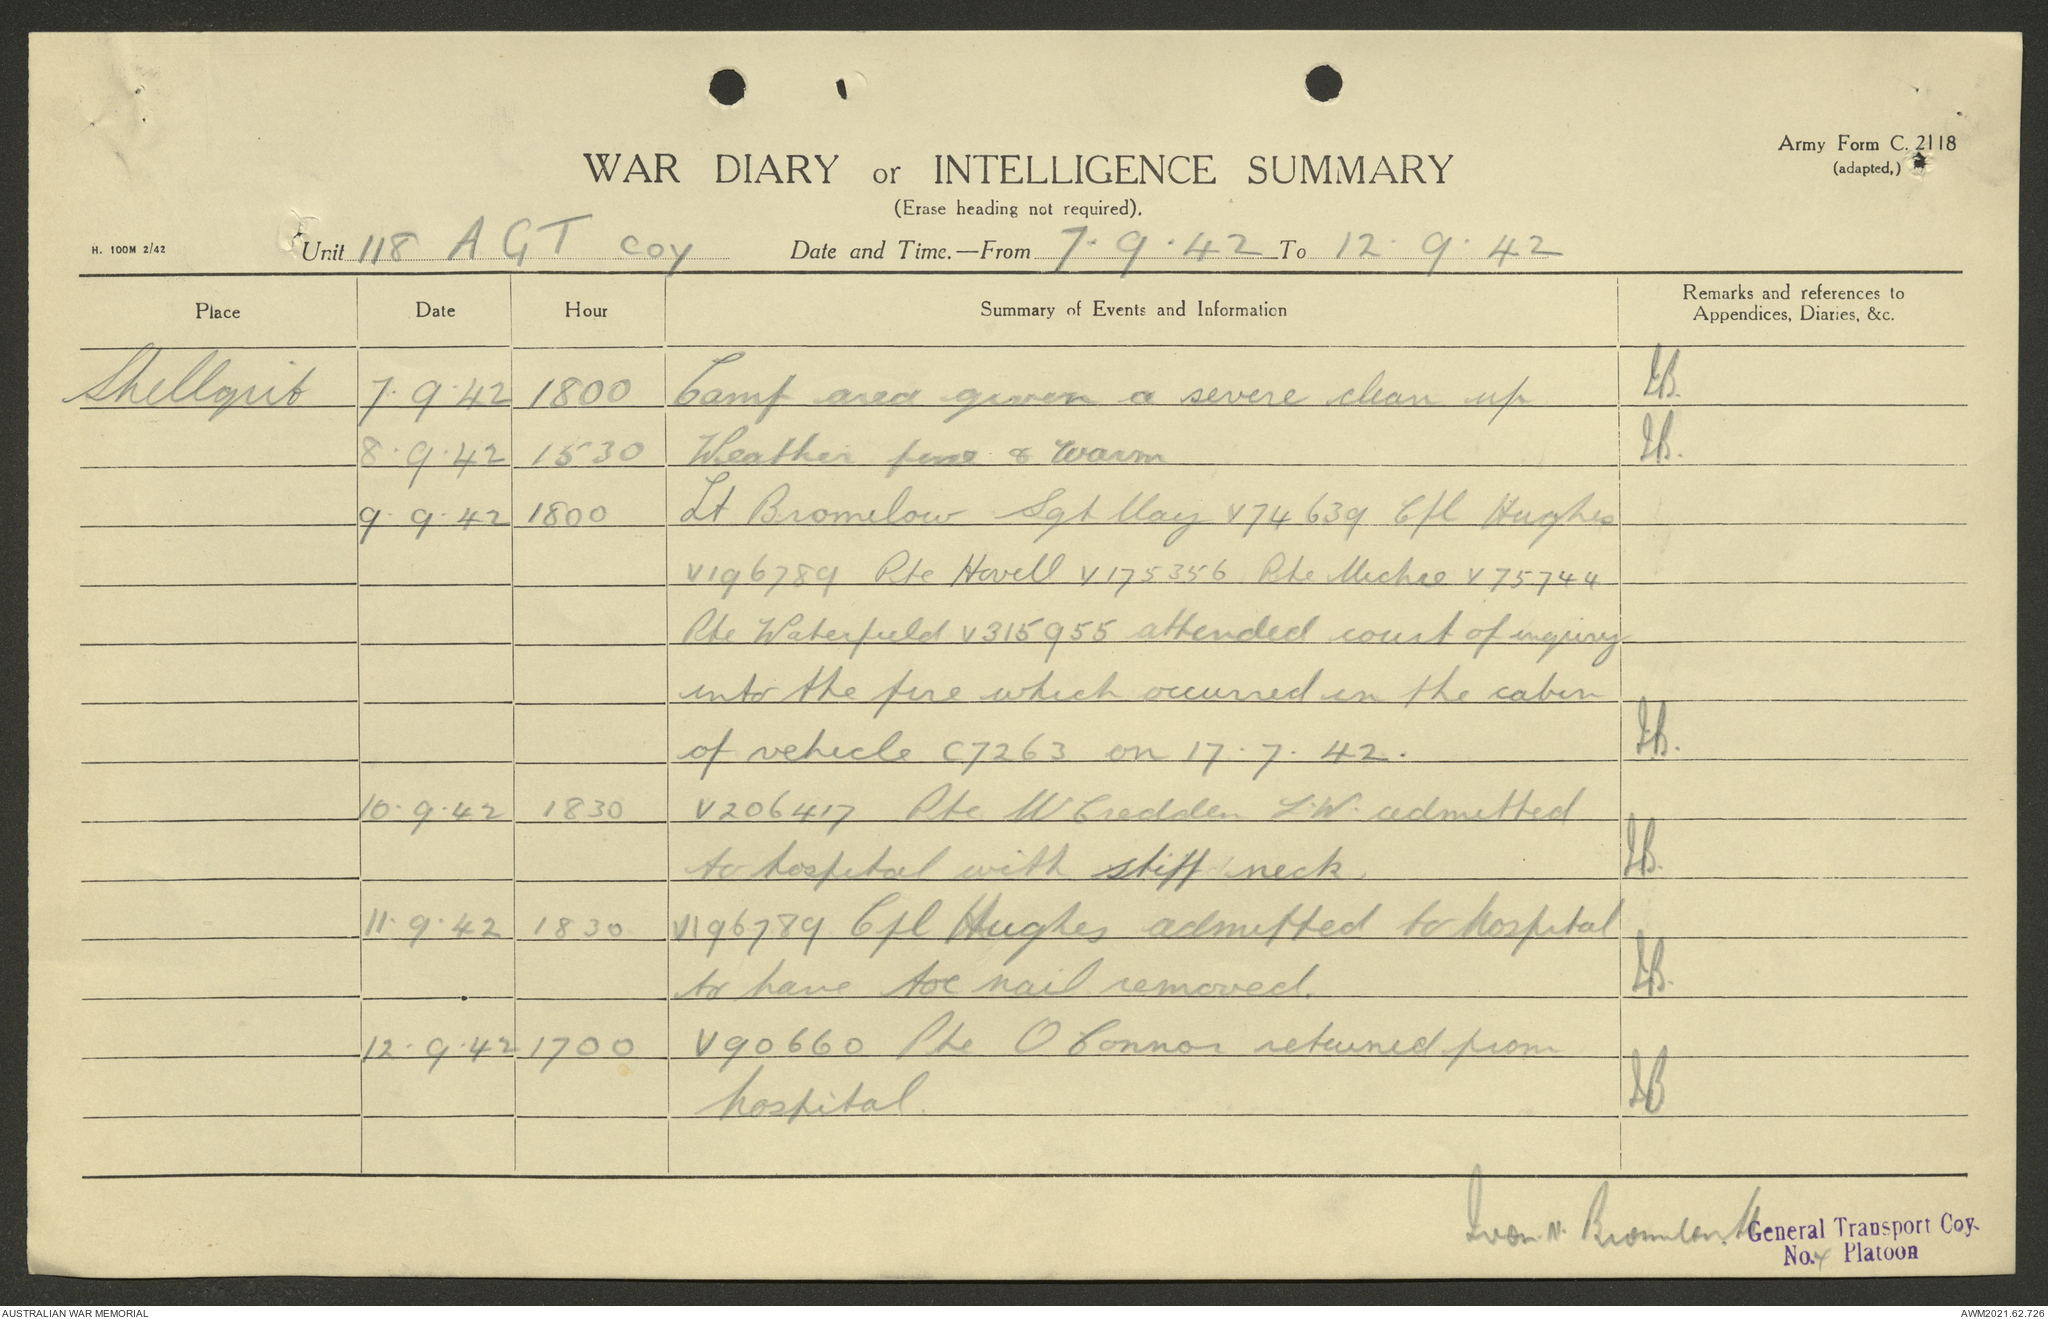 Army Form C. 2118
(adapted,)
WAR DIARY or INTELLIGENCE SUMMARY
(Erase heading not required).
H. 100M 2/42
Unit 118 AGT Coy Date and Time.—From 7.9.42 To 12.9.42
Place Date Hour Summary of Events and Information Remarks and references to Appendices, Diaries, &c.
Shellgrit 7.9.42 1800 Camp area given a severe clean up IB.
8.9.42 1530 Weather fine & warm IB.
9.9.42 1800 Lt Bromelow Sgt May V74639 Cpl Hughes
V196789 Pte Hovell V175356 Pte Michie V75744
Pte Waterfield V315955 attended court of inquiry
into the fire which occurred in the cabin
of vehicle C7263 on 17.7.42. IB.
10.9.42 1830 V206417 Pte McCredden L.W. admitted
to hospital with stiff neck. IB.
11.9.42 1830 V196789 Cpl Hughes admitted to hospital
to have toe nail removed. IB.
12.9.42 1700 V90660 Pte O'Connor returned from
hospital. IB
Ivan N. Bromelow Lt
General Transport Coy.
No. 4 Platoon
AUSTRALIAN WAR MEMORIAL
AWM2021.62.726